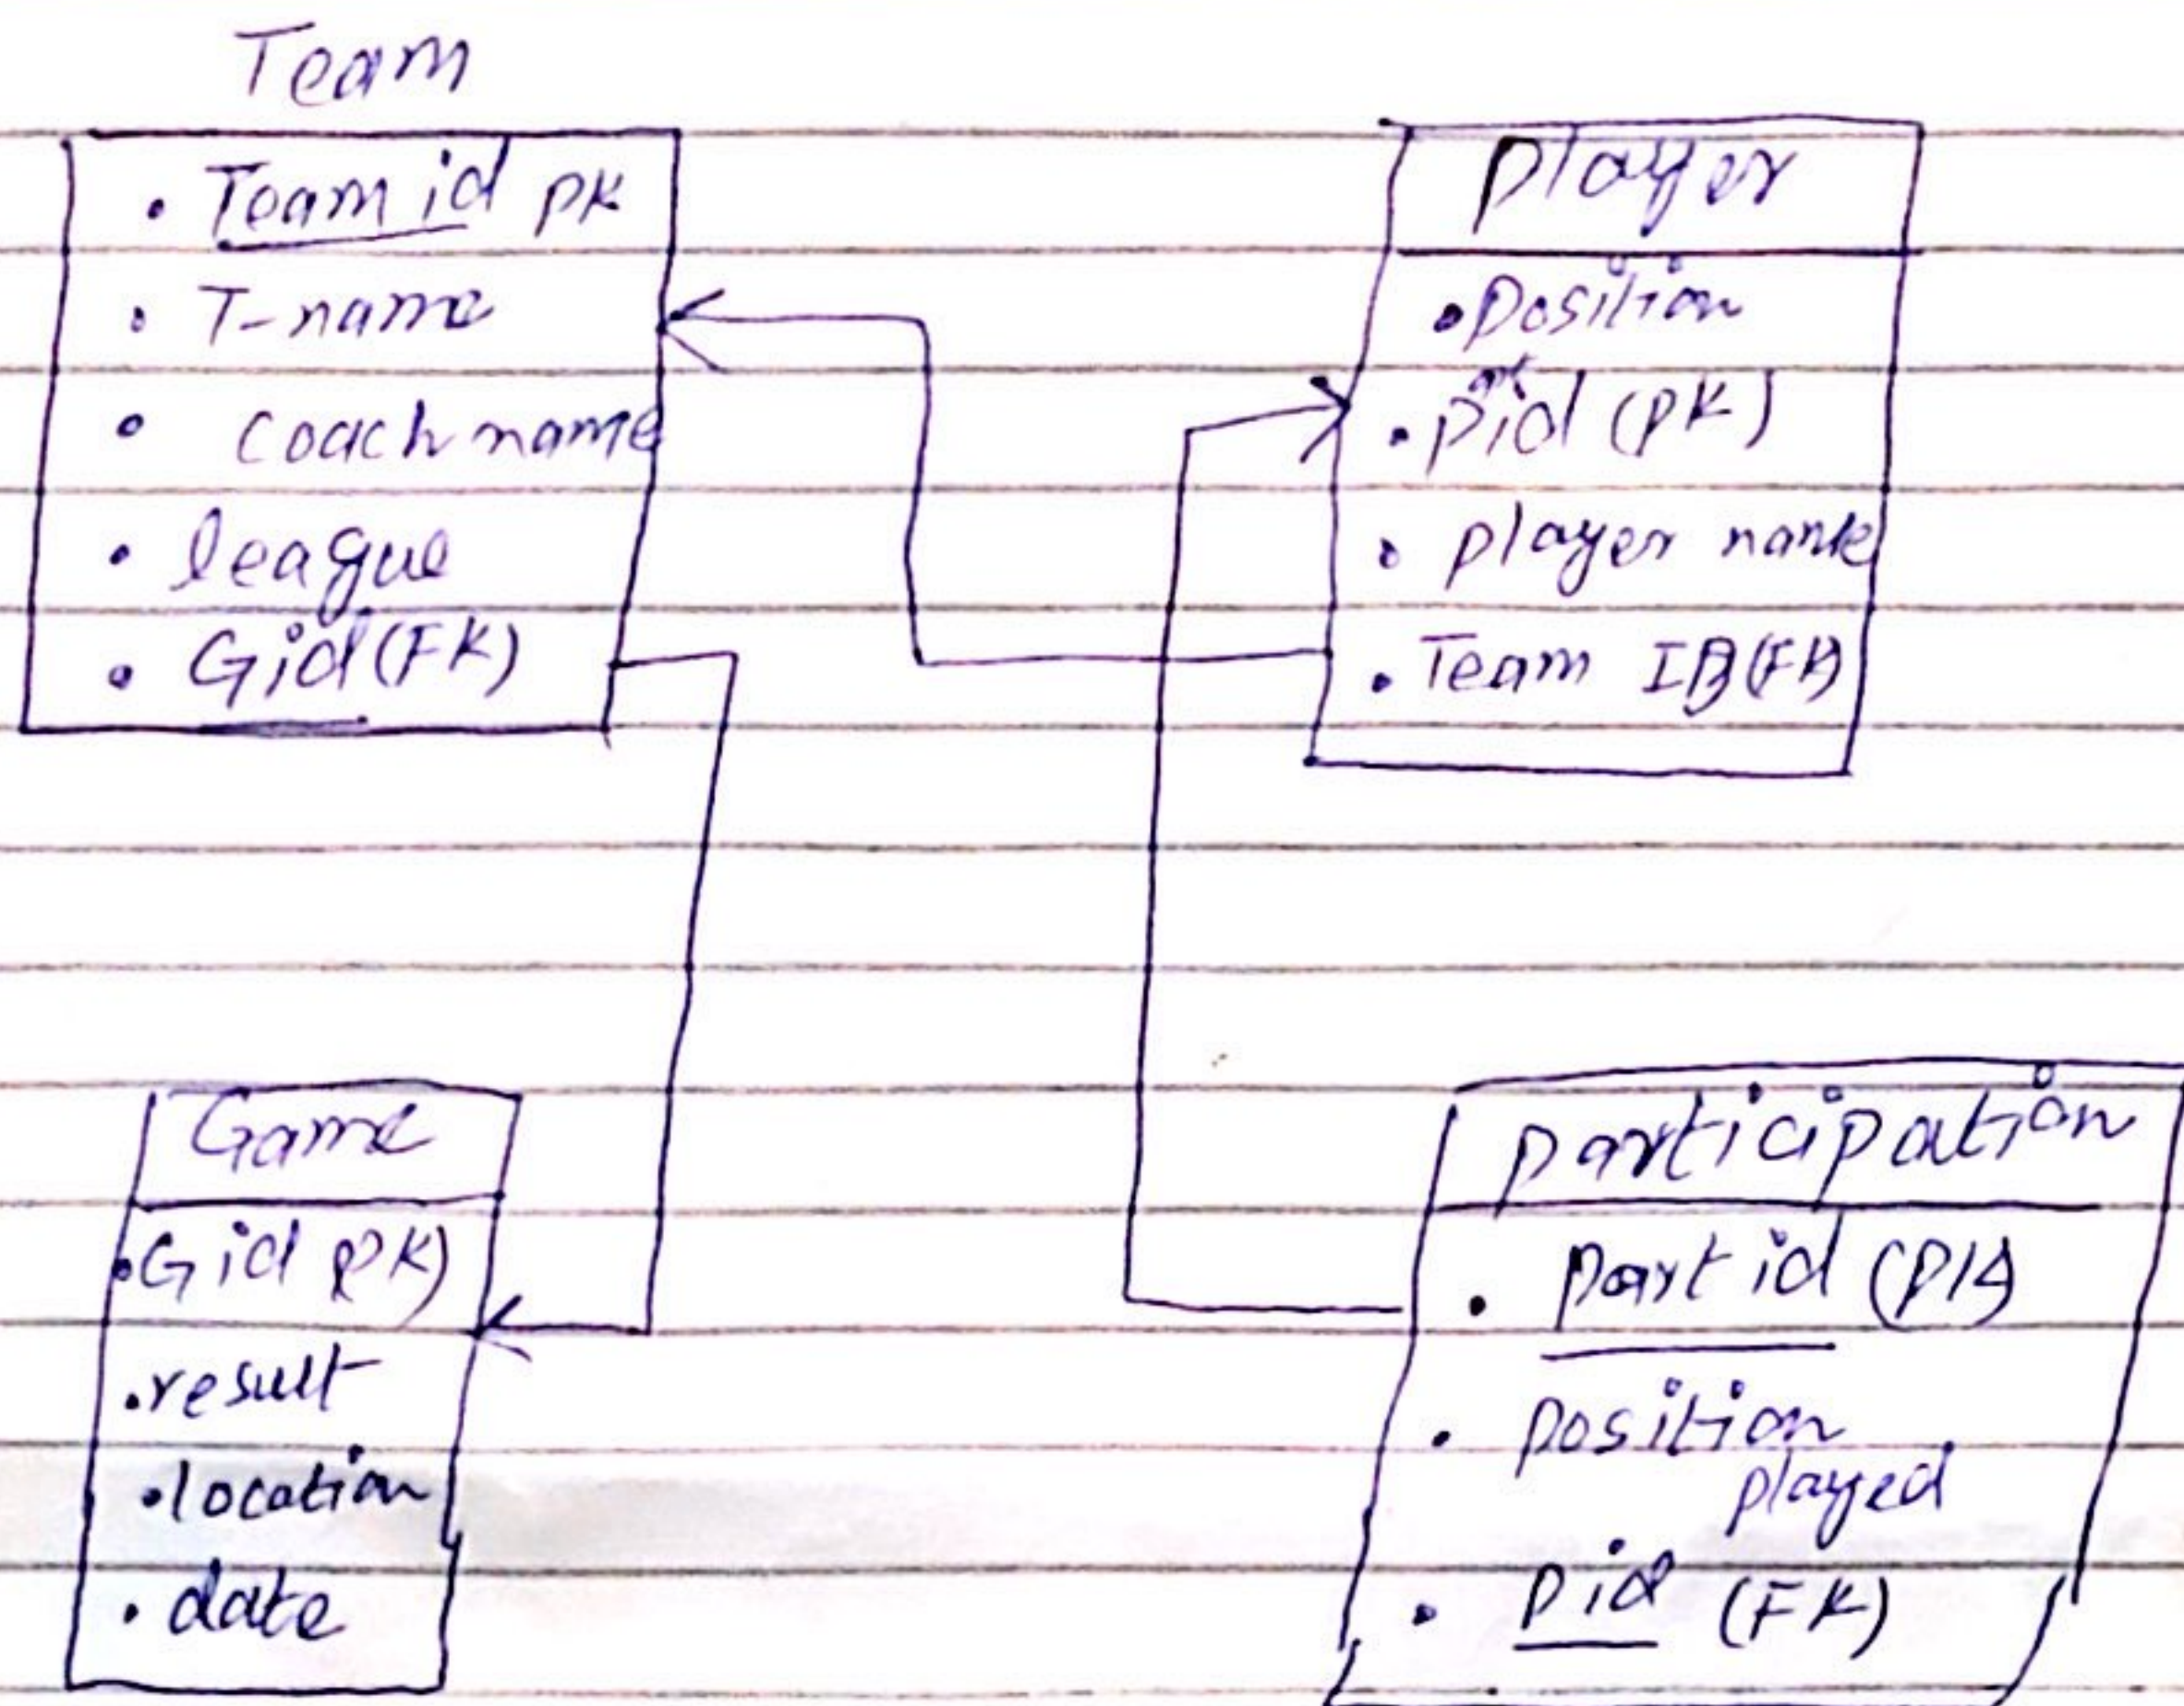 Team
• Team id PK
• T-name
• Coach name
• league
• Gid (FK)
Player
• Position
• Pid (PK)
• player name
• Team ID (FK)
Game
• Gid (PK)
• result
• location
• date
participation
• Part id (PK)
• position
played
• Pid (FK)